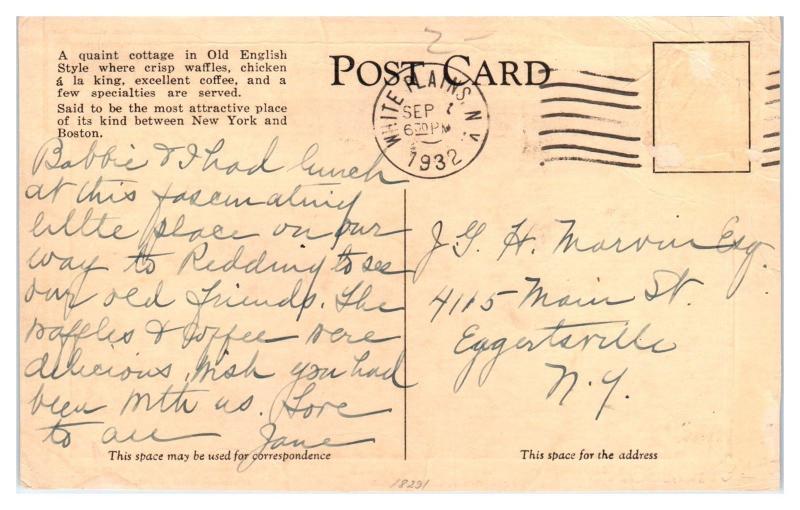 A quaint cottage in Old English
Style where crisp waffles, chicken
á la king, excellent coffee, and a
few specialties are served.
Said to be the most attractive place
of its kind between New York and
Boston.
POST CARD
2-
WHITE PLAINS, N.Y.
SEP
6 30 PM
1932
Bobbie & I had lunch
at this fascinating
little place on our
way to Redding to see
our old friends. The
waffles & coffee were
delicious, wish you had
been with us. Love
to all Jane
J. G. H. Marvin Esq.
4115 Main St.
Eggertsville
N.Y.
This space may be used for correspondence
This space for the address
18291